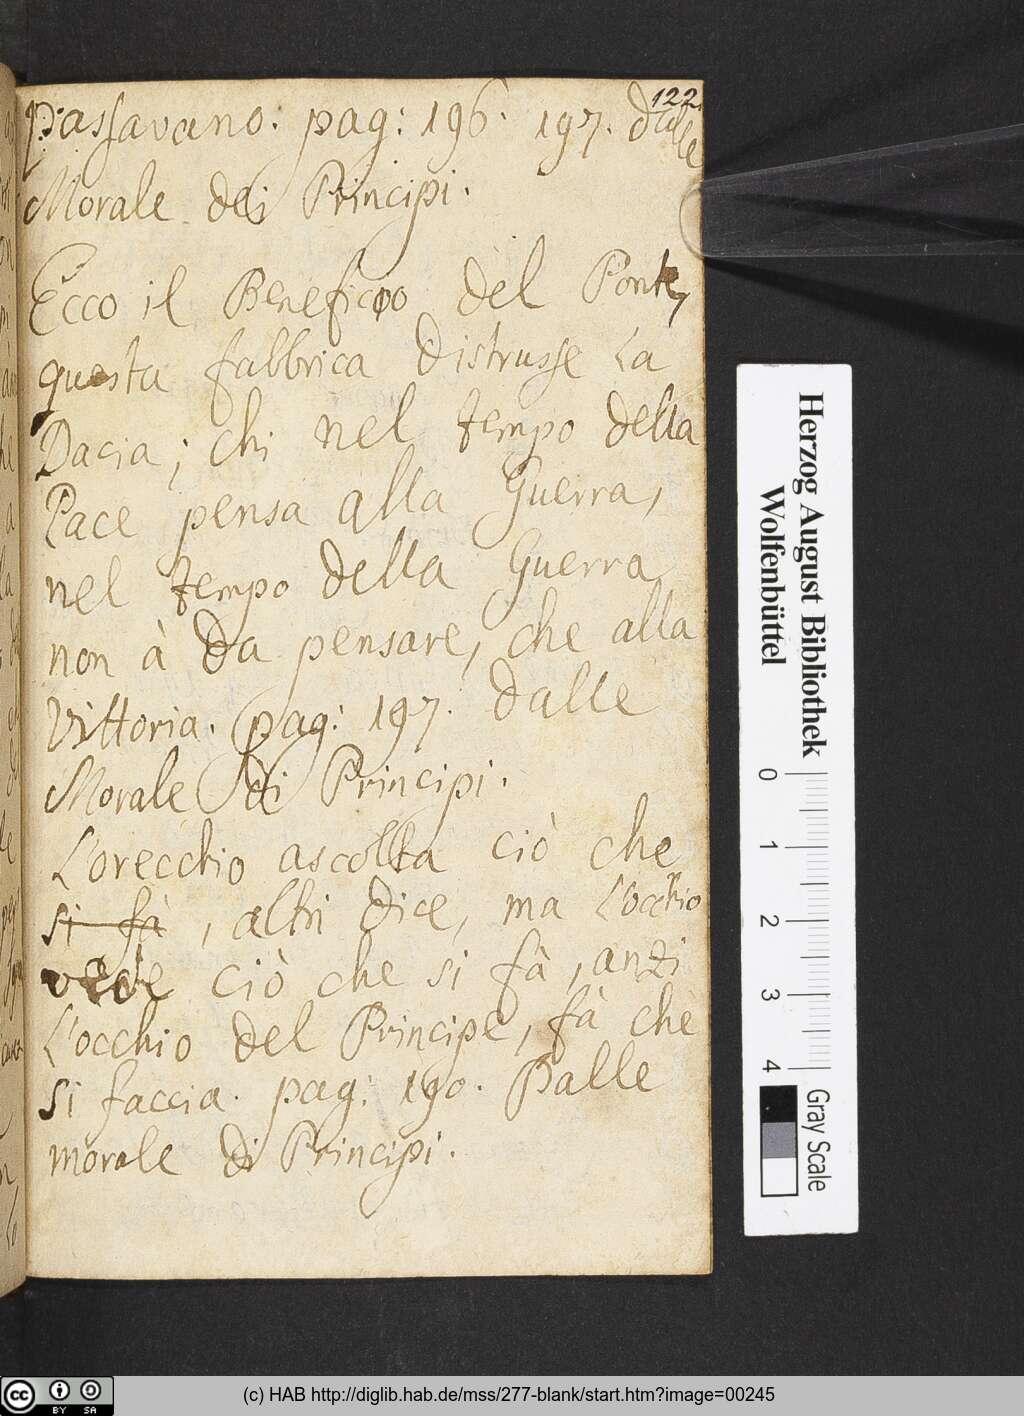 122.
Passavano. pag: 196. 197. dalle
Morale dei Principi.
Ecco il Beneficio del Ponte,
questa fabbrica distrusse la
Dacia; chi nel tempo della
Pace pensa alla Guerra,
nel tempo della Guerra
non à da pensare, che alla
Vittoria. pag: 197. dalle
Morale di Principi.
L'orecchio ascolta ciò che
si fà, altri dice, ma l'occhio
vede ciò che si fà, anzi
L'occhio del Principe, fà che
si faccia. pag: 190. Dalle
morale di Principi.
Herzog August Bibliothek
Wolfenbüttel
0 1 2 3 4
Gray Scale
cc BY SA
(c) HAB http://diglib.hab.de/mss/277-blank/start.htm?image=00245